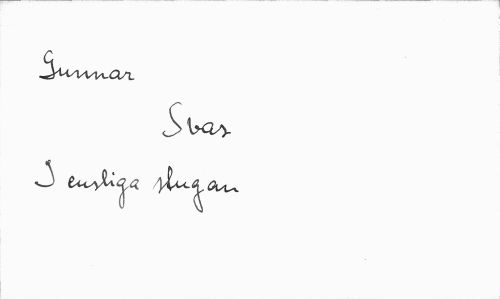 Gunnar
Svar
I ensliga stugan